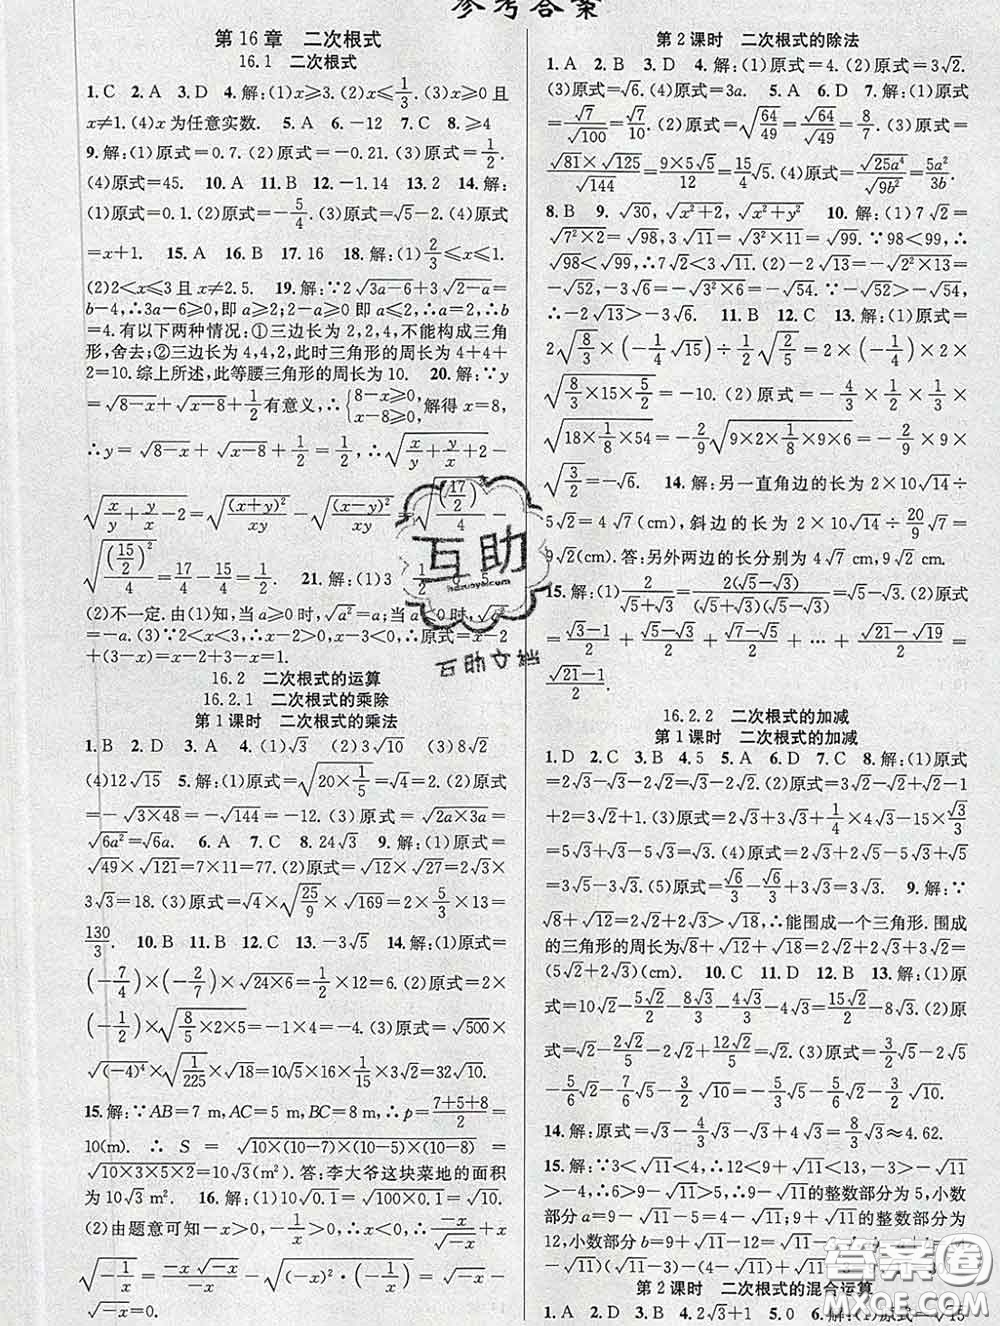 参考答案
第16章 二次根式
16.1 二次根式
1.C 2.A 3.D 4.解:(1)x≥3.(2)x≤1/3.(3)x≥0且
x≠1.(4)x为任意实数. 5.A 6.-12 7.C 8.≥4
9.解:(1)原式=0.7.(2)原式=-0.21.(3)原式=1/2.
(4)原式=45. 10.A 11.B 12.-1.14 13.2 14.解:
(1)原式=0.1.(2)原式=-5/4.(3)原式=√5-2.(4)原式
=x+1. 15.A 16.B 17.16 18.解:(1)2/3≤x≤1.
(2)2<x≤3且x≠2.5. 19.解:∵2√(3a-6)+3√(2-a)=
b-4,∴3a-6≥0,即a≥2;2-a≥0即a≤2,∴a=2,∴b
=4.有以下两种情况:①三边长为2,2,4,不能构成三角
形,舍去;②三边长为4,4,2,此时三角形的周长为4+4+
2=10.综上所述,此等腰三角形的周长为10. 20.解:∵y
=√(8-x)+√(x-8)+1/2有意义,∴{8-x≥0, x-8≥0,解得x=8,
∴y=√(8-x)+√(x-8)+1/2=1/2,∴√(x/y+y/x+2)-
√(x/y+y/x-2)=√((x+y)²/xy)-√((x-y)²/xy)=√((17/2)²/4)-
√((15/2)²/4)=17/4-15/4=1/2. 21.解:(1)3 1/2 0 5
(2)不一定.由(1)知当a≥0时,√a²=a;当a<0时,√a²
=-a.(3)∵2<x<3,∴x-2>0,x-3<0,∴原式=x-2
+(3-x)=1.
16.2 二次根式的运算
16.2.1 二次根式的乘除
第1课时 二次根式的乘法
1.B 2.D 3.A 4.(1)√3 (2)3√3 (3)8√2
(4)12√15 5.解:(1)原式=√(20×1/5)=√4=2.(2)原式=
-√(3×48)=-√144=-12.(3)原式=√(2a×3a)=
√(6a²)=√6a. 6.A 7.C 8.24√3 9.解:(1)原式=
√49×√121=7×11=77.(2)原式=√12×√27=2√3×
3√3=18.(3)原式=√(25/9)×√169×2=5/3×13×2=
130/3. 10.B 11.B 12.D 13.-3√5 14.解:(1)原式=
(-7/4)×(-2/7)×√(24×6)=1/2×12=6.(2)原式=2×
(-1/2)×√(8/5×2×5)=-1×4=-4.(3)原式=√500×
√(-4)⁴×√(1/225)×√18=10√5×16×1/15×3√2=32√10.
15.解:∵AB=7 m,AC=5 m,BC=8 m,∴p=(7+5+8)/2=
10(m).∴S=√(10×(10-7)×(10-5)×(10-8))=
√(10×3×5×2)=10√3(m²).答:李大爷这块菜地的面积
为10√3 m². 16.解:(1)10√0.1=√100×√0.1=√10.
(2)由题意可知-x>0,-1/x>0,∴x<0,∴(-x)/√(-x)+x
√(-1/x)=(-x√(-x))/(-x)-√(-1/x·x²)=√(-x)-√(-x)=0.
第2课时 二次根式的除法
1.A 2.B 3.D 4.解:(1)原式=4.(2)原式=3√2.
(3)原式=√6.(4)原式=3a. 5.A 6.D 7.解:(1)原式=
√7/√100=√7/10.(2)原式=√(64/49)=√64/√49=8/7.(3)原式=
(√81×√125)/√144=(9×5√5)/12=15/4√5.(4)原式=√(25a⁴)/√(9b²)=5a²/3b.
8.B 9.√30,√(x²+2),√(x²+y²) 10.解:(1)7√2=
√(7²×2)=√98,3√11=√(3²×11)=√99.∵98<99,∴
√98<√99,∴7√2<3√11.(2)-√(2²×13)=
-√52,-3√6=-√(3²×6)=-√54.∵-√52>-√54,
∴-2√13>-3√6. 11.B 12.C 13.解:(1)原式=
2√(8/3)×(-1/4√15)÷1/2√(2/5)=2×(-1/4)÷1/2×
√(8/3×15×5/2)=-10.(2)原式=-4/3×1/9×3/2×
√(18×1/8×54)=-2/9√(9×2×1/8×9×6)=-2/9×9
√(3/2)=-√6. 14.解:另一直角边的长为2×10√14÷
5√2=4√7(cm),斜边的长为2×10√14÷20/9√7=
9√2(cm).答:另外两边的长分别为4√7 cm,9√2 cm.
15.解:(1)2/(√5+√3)=2(√5-√3)/((√5+√3)(√5-√3))=√5-√3.(2)原式
=(√3-1)/2+(√5-√3)/2+(√7-√5)/2+…+(√21-√19)/2=
(√21-1)/2.
16.2.2 二次根式的加减
第1课时 二次根式的加减
1.D 2.C 3.B 4.5 5.A 6.D 7.C 8.解:(1)原
式=2√3-√3=√3.(2)原式=2√3-√2+√2-1
+2=2√3+1.(3)原式=3√2+1/4×4√3-15×√3/3
=5√3+√3-5√3=√3.(4)原式=2√3+2√5-√3+
√5=3√5+√3.(5)原式=√6/3-√6/3+3√3=3√3. 9.解:∵
√8+√12=2√2+2√3>√18,∴能围成一个三角形.围成
的三角形的周长为√8+√12+√18=2√2+2√3+3√2=
(5√2+2√3)(cm). 10.C 11.D 12.B 13.解:(1)原
式=10√2-5√2/2-8√3/3-4√3/3-4√3=15√2/2-8√3.(2)原
式=√2-2√5/5-√2/2=√2/2-2√5/5.(3)原式=3/2√5-2√5-
5/6√2-1/6√2=-1/2√5-√2.
14.解:原式=√3-1/3√3-√3+4√3-√3=8/3√3≈4.62.
15.解:∵3<√11<4,∴12<9+√11<13.∵-3>-√11
>-4,∴6>9-√11>5.∴9-√11的整数部分为5,小数
部分a=9-√11-5=4-√11;9+√11的整数部分为
12,小数部分b=9+√11-12=√11-3.
第2课时 二次根式的混合运算
1.A 2.D 3.B 4.2√3+1 5.0 6.解:(1)原式=√15
互助
互助文曲
答案圈
MXQE.COM